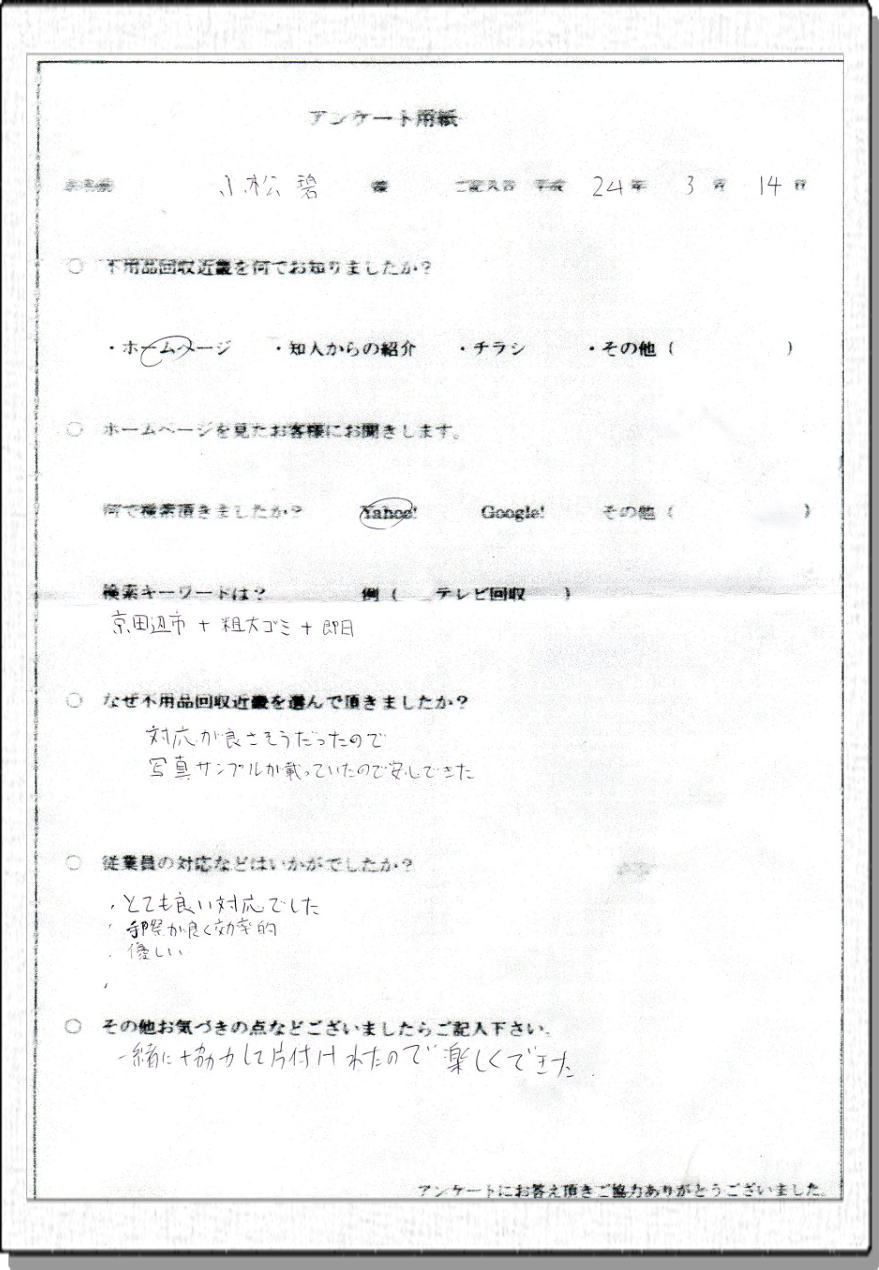 アンケート用紙
お名前 小松 碧 様 ご記入日 平成 24年 3月 14日
○ 不用品回収近畿を何でお知りましたか?
・ホームページ ・知人からの紹介 ・チラシ ・その他 ( )
○ ホームページを見たお客様にお聞きします。
何で検索頂きましたか? Yahoo! Google! その他 ( )
検索キーワードは? 例 ( テレビ回収 )
京田辺市 + 粗大ゴミ + 即日
○ なぜ不用品回収近畿を選んで頂きましたか?
対応が良さそうだったので
写真サンプルが載っていたので安心できた
○ 従業員の対応などはいかがでしたか?
・とても良い対応でした
・手際が良く効率的
・優しい
○ その他お気づきの点などございましたらご記入下さい。
一緒に協力して片付けれたので楽しくできた
アンケートにお答え頂きご協力ありがとうございました。